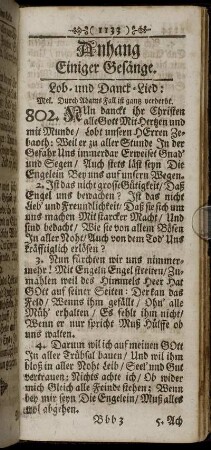 ( 1133 )
Anhang
Einiger Gesänge.
Lob- und Danck-Lied:
Mel. Durch Adams Fall ist gantz verderbt.
802. NUn dancket ihr Christen
alle Gott Mit Hertzen und
mit Munde/ Lobt unsern HErren Ze-
baoth: Weil er zu aller Stunde In der
Gefahr Uns immerdar Erweist Gnad'
und Segen/ Auch stets läst seyn Die
Engelein Bey uns auf unsern Wegen.
2. Ist das nicht grosse Gütigkeit/ Daß
Engel uns bewachen? Ist das nicht
Lieb' und Freundlichkeit/ Daß sie sich um
uns machen Mit starcker Macht/ Und
sind bedacht/ Wie sie von allem Bösen
In aller Noht/ Auch von dem Tod' Uns
kräfftiglich erlösen?
3. Nun fürchten wir uns nimmer-
mehr! Mit Engeln Engel streiten/ Zu-
mahlen weil des Himmels Heer Hat
GOtt auf seiner Seiten: Der kan das
Feld/ Wenns ihm gefällt/ Ohn' alle
Müh' erhalten/ Es fehlt ihm nicht/
Wenn er nur spricht Muß Hülffe ob
uns walten.
4. Darum wil ich auf meinen GOtt
In aller Trübsal bauen/ Und wil ihm
bloß in aller Noht Leib/ Seel' und Gut
vertrauen; Nichts achte ich/ Ob wider
mich Gleich alle Feinde stehen; Wenn
bey mir seyn Die Engelein/ Muß alles
wol abgehen.
Bbb 3 5. Ach